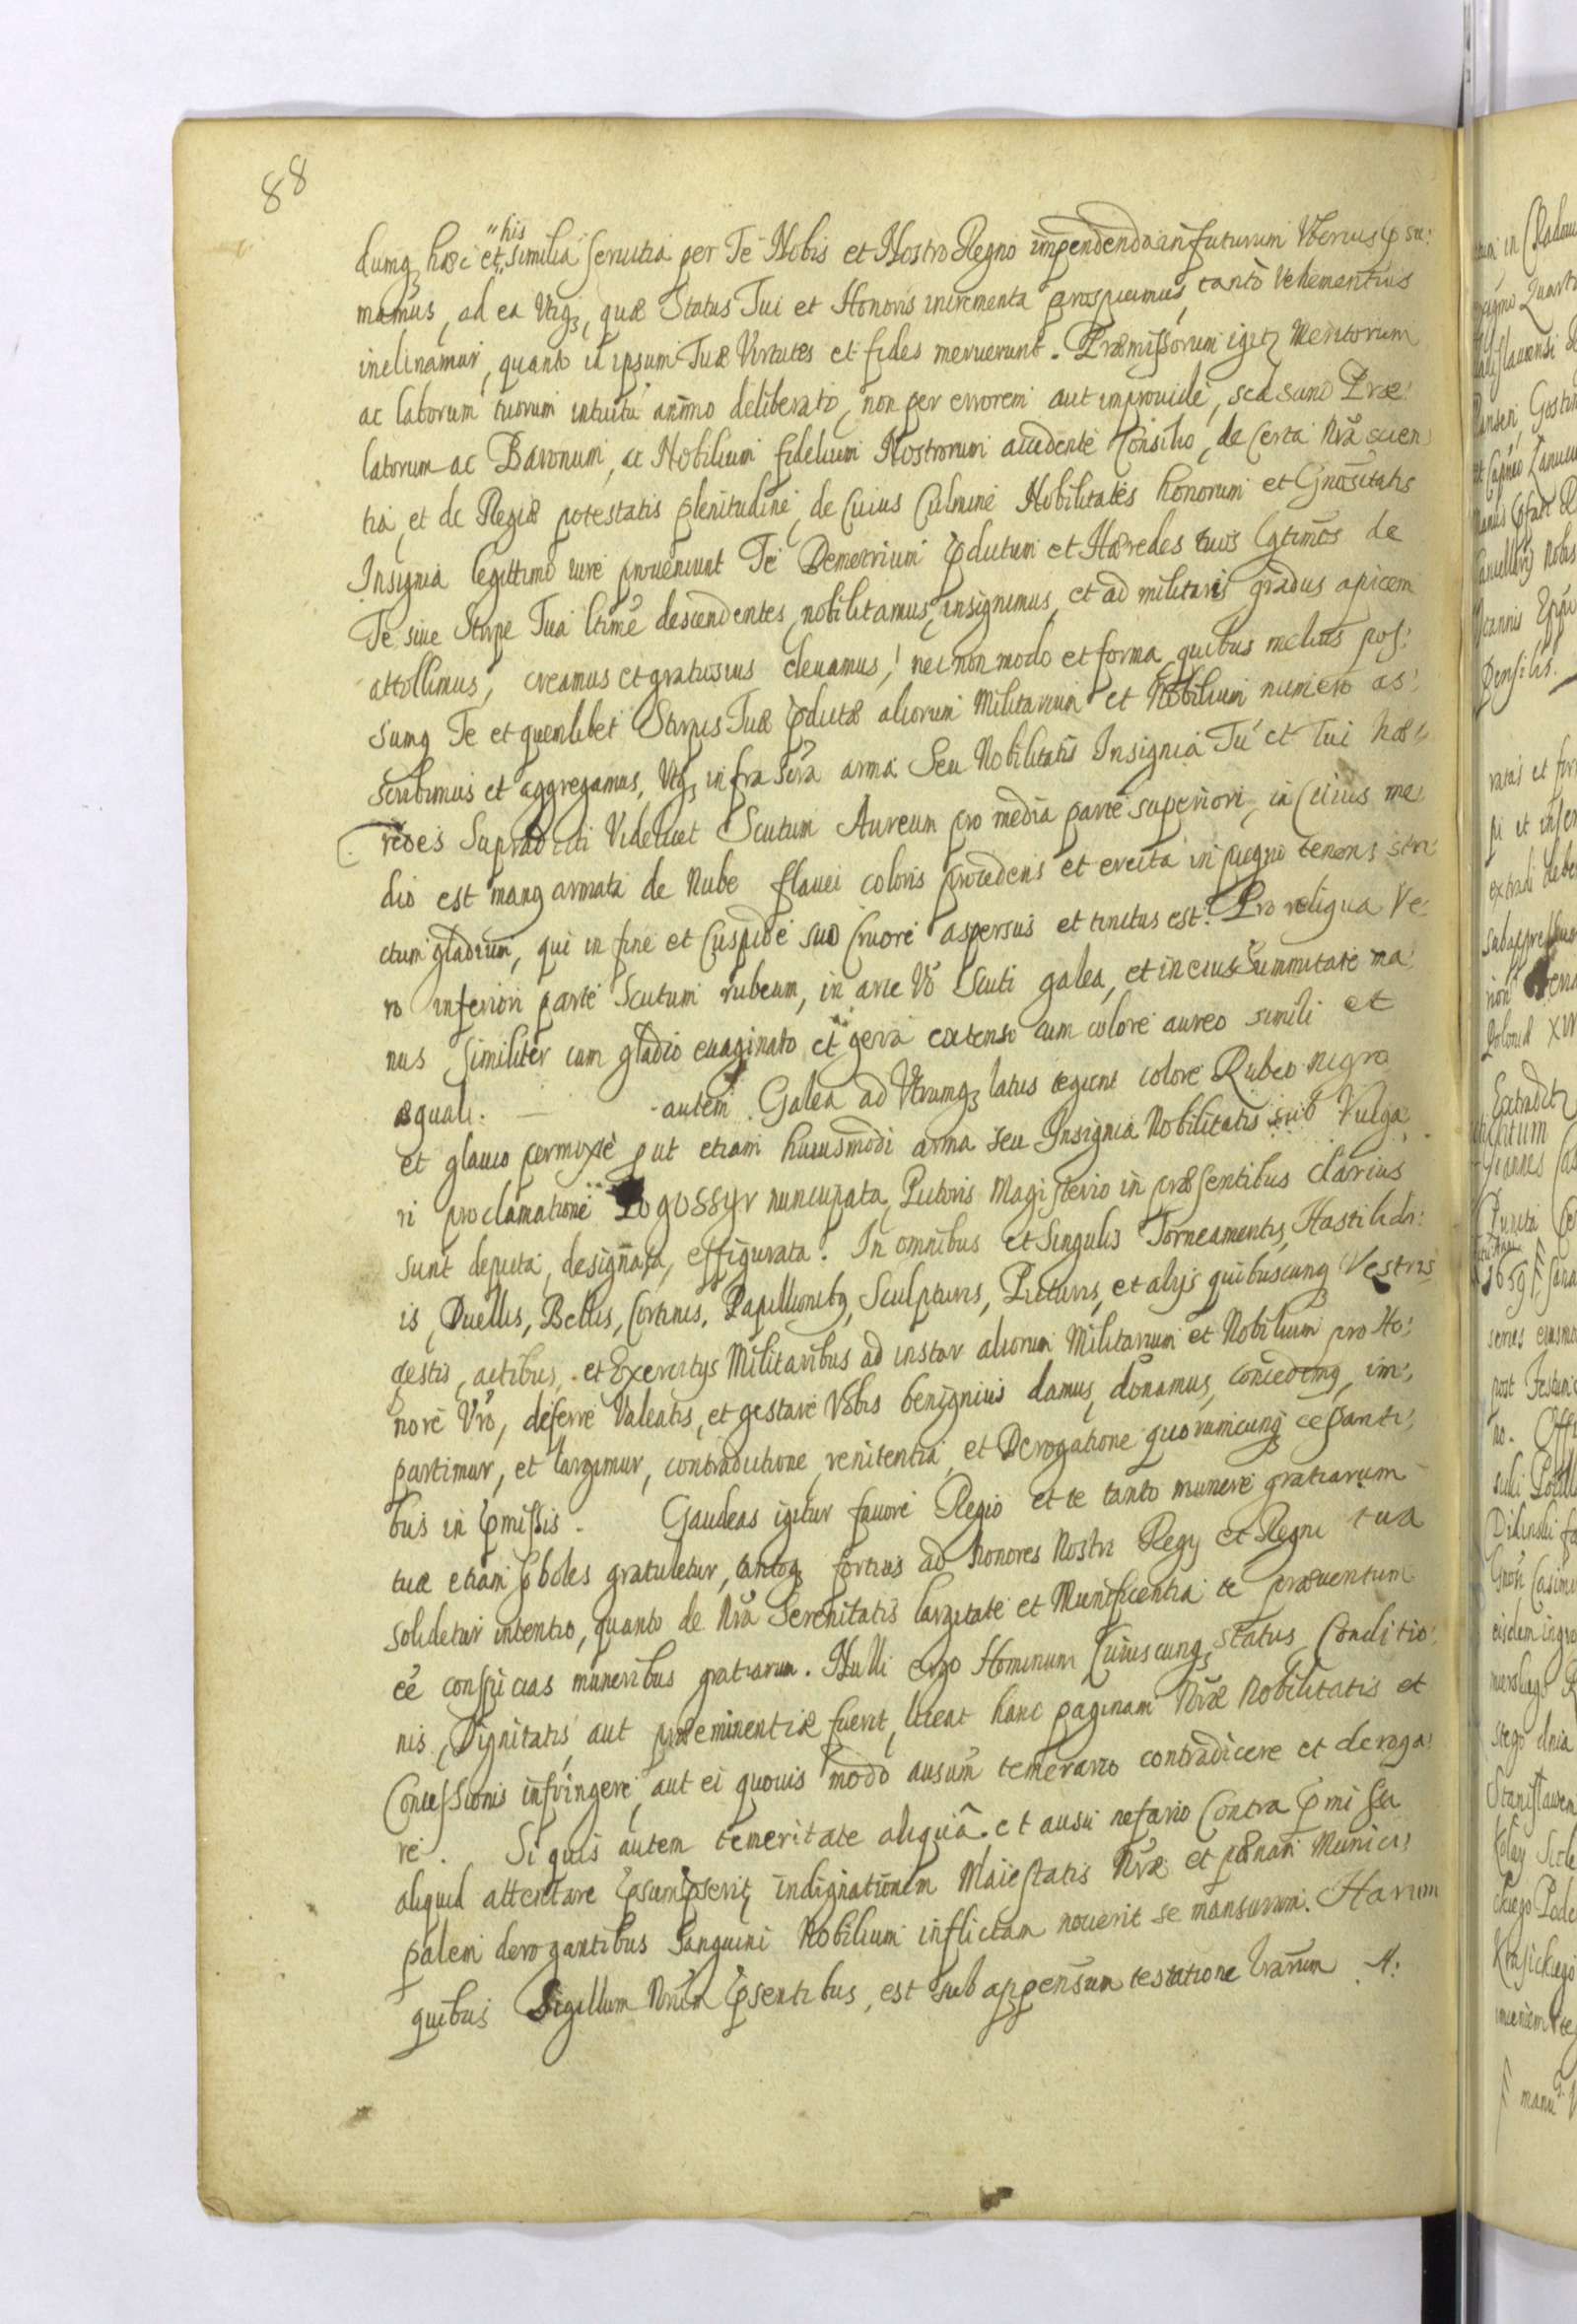 88
dumq; hæc et his similia seruitia per Te Nobis et Nostro Regno impendenda in futurum Vberius p̄su:
mamus, ad ea Utiq;, quæ Status Tui et Honoris incrementa prospicimus, tantò Vehementius
inclinamur, quanto id ipsum Tuæ Virtutes et fides meruerunt. Præmissorum igitr Meritorum
ac laborum tuorum intuitu animo deliberato, non per errorem aut improuide, sed sano Præ:
latorum ac Baronum, ac Nobilium fidelium Nostrorum accedente Consilio, de Certa Nrã scien:
tia, et de Regiæ potestatis plenitudine, de Cuius Culmine Nobilitatës honorum et Gnõsitatis
Insignia legittimo iure proueniunt Te Demetrium p̄dictum et Hæredes tuos lgtimõs de
Te siue Stirpe Tua ltimẽ descendentes, nobilitamus, insignimus, et ad militaris gradus apicem
attollimus, creamus et gratiosius eleuamus, nec non modo et forma, quibus melius pos:
sumq Te et quemlibet Stirpis Tuæ p̄dictæ aliorum Militarium et Nobilium numero as:
scribimus et aggregamus, Vtq; infra scrã arma Seu Nobilitatis Insignia Tu et Tui hæ:
redes Supradicti Videlicet Scutum Aureum pro media parte superiori, in Cuius me:
dio est manq armata de Nube flauei coloris procedens et erecta in pugno tenens stri:
ctum gladium, qui in fine et Cuspide suo Cruore aspersus et tinctus est. Pro reliqua Ve:
ro inferiori parte Scutum rubeum, in arce Vō Scuti galea, et in eius Summitate ma:
nus Similiter cum gladio euaginato et gerrã extenso cum colore aureo simili et
æquali. — - autem Galea ad Utrumq; latus tegunt colore Rubeo nigro
et glauco permixtè put etiam huiusmodi arma seu Insignia Nobilitatis sub Vulga
ri proclamatione Pogossyr nuncupata, Pictoris Magisterio in præsentibus clarius
sunt depicta, designata, effigurata. In omnibus et Singulis Torneamentis, Hastiludi:
is, Duellis, Bellis, Cortinis, Papillionibq, Sculpturis, Picturis, et alijs quibuscunq Vestris
gestis, actibus, et Exercitijs Militaribus ad instar aliorum Militarium et Nobilium pro Ho:
nore Vrõ, deferre Valentis, et gestare Vobis benignius damus, donamus, concedimq, im:
partimur, et largimur, contradictione, renitentia, et Derogatione quorumcunq cessanti:
bus in p̄missis. Gaudeas igitur fauore Regio et te tanto munere gratiarum
tuæ etiam p̱boles gratuletur, tantoq; fortius ad honores Nostri Regij et Regni tua
solidetur intentio, quanto de Nrã Serenitatis largitate et Munificentia te præuentum
eẽ conspicias muneribus gratiarum. Nulli ergo Hominum Cuiuscunq; Status, Conditio:
nis, Dignitatis, aut præeminentiæ fuerit, liceat hanc paginam Nr̃æ Nobilitatis et
Concessionis infringere, aut ei quouis modo ausum temerario contradicere et deroga:
re. Si quis autem temeritate aliquâ et ausu nefario Contra p̄missa
aliquid attentare p̄sumpserit, indignationem Maiestatis Nr̃æ et pœnam Munici:
palem derogantibus Sanguini Nobilium inflictam nouerit se mansurum. Harum
quibus Sigillum Nrũm p̄sentibus, est sub appensum testatione lrarum. A: